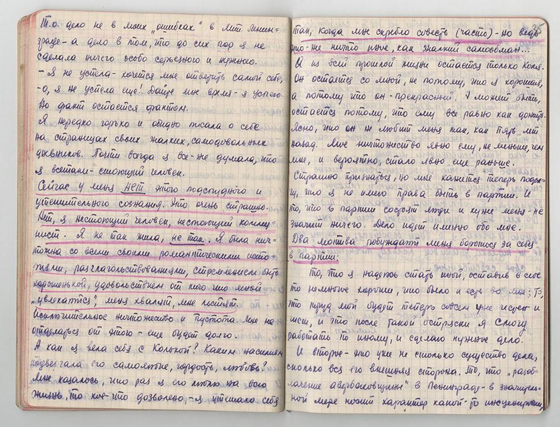 Т.о. дело не в моих "ошибках" в Лит.
- а дело в том, что до сих пор я не
сделала ничего особо серьезного и нужного.
- Я не успела - хочется мне ответить самой себе,
-о, я не успела еще! Дайте мне время - я успею
Но факт остается фактом.
Я нередко горько и обидно писала о себе
на страницах своих жалких, самодовольных
дневников. Почти всегда я все-же думала, что
я все-таки - стоющий человек.
Сейчас у меня нет этого подспудного и
утешительного сознания. Это очень страшно.
Нет, я нестоющий человек, нестоющий комму-
нист. Я не так жила, не так. Я была нич-
тожна со всеми своими романтическими
разглагольствованиями, стремлением быть
удовольствием от того что мной
увлекаются, меня хвалят, мне льстят.
Исключительное ничтожество и пустота
от этого - еще будет долго.
А как я вела себя с Колькой? Каким насмешкам
подвергала его самолюбие, гордость, любовь!
Мне казалось, что раз я его люблю на всю
жизнь, то кое-что дозволено, - я утешала себя
тем, когда мне скребло совесть (часто) - но ведь
это-же ничто иное, как жалкий самообман...
И из всей прошлой жизни остается только Коля.
Он остается со мной, не потому, что я хорошая,
а потому что он - прекрасный. А может быть,
остается потому, что ему все равно как
Ясно, что он не любит меня так, как пять лет
назад. Мое ничтожество явно ему, не меньше, чем
мне, и вероятно, стало явно еще раньше.
Страшно признаться, но мне кажется теперь
что я не имею права быть в партии. И
то, что в партии состоят люди и хуже меня - не
значит ничего. Дело идет именно обо мне.
Два мотива побуждают меня бороться за себя
в партии:
то, что я надеюсь стать иной, оставив в
то что было и есть во мне; то,
что труд мой будет теперь совсем уже
и что после такой встряски я смогу
работать по иному, и сделаю нужные дела.
И второе - это уже не столько существо дела,
сколько вся его внешняя сторона. То, что "разоб-
лачение авербаховщины" в Ленинграде - в значитель-
ной мере носит характер какой-то инсценировки